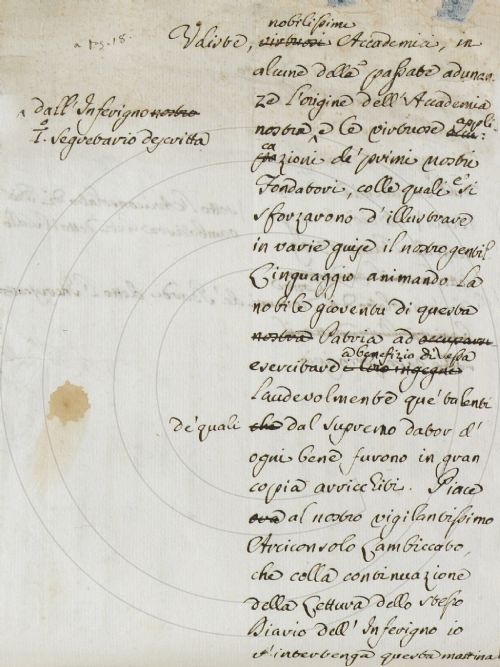 a pg. 18.
nobilissimi
Udiste, virtuosi Accademici, in
alcune delle passate adunan
ze l'origine dell'Accademia
dall'Inferigno nostro
1.º Segretario descritta
nostra e le virtuose appli
cazioni de' primi nostri
Fondatori, colle quali e' si
sforzarono d'illustrare
in varie guise il nostro gentil
Linguaggio animando la
nobile gioventù di questa
nostra Patria ad occuparsi
a benefizio di essa
esercitare i loro ingegni
laudevolmente que' talenti
de' quali che dal supremo dator d'
ogni bene furono in gran
copia arricchiti. Piace
ora al nostro vigilantissimo
Arciconsolo Lambiccato,
che colla continuazione
della Lettura dello stesso
Diario dell'Inferigno io
v'intertenga questa mattina